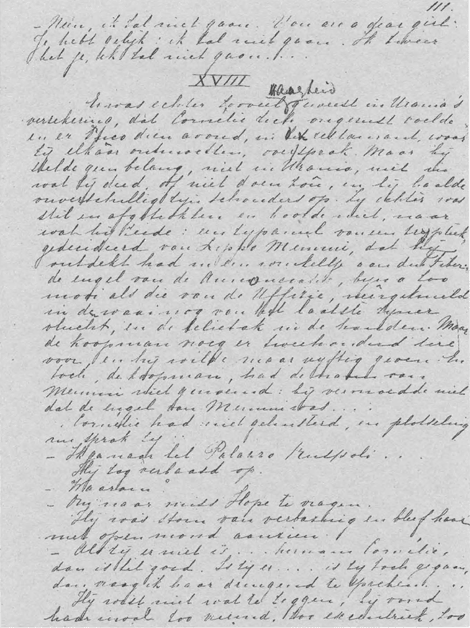 111.
— Neen, ik zal niet gaan. You are a dear girl.
Je hebt gelijk: ik zal niet gaan. Ik zweer
het je, ik zal niet gaan!...
XVIII
haagheid
Er was echter zooveel geweest in Urania's
verzekering, dat Cornélie zich ongerust voelde
en er Duco dien avond, in restaurant, waar
zij elkaâr ontmoetten, over sprak. Maar hij
stelde geen belang, niet in Urania, niet in
wat zij deed, of niet doen zoû, en hij haalde
onverschillig zijn schouders op. Zij echter was
stil en afgetrokken en hoorde niet, naar
wat hij zeide: een zijpaneel van een triptiek,
gedecideerd van Lippo Memmi, dat hij
ontdekt had in een winkeltje aan den Tiber:
de engel van de Annunciatie, bijna zoo
mooi als die van de Uffizie, neêrgeknield
in de waai nog van het laatste zijner
vlucht, en de lelietak in de handen. Maar
de koopman vroeg er tweehonderd lire
voor en hij wilde maar vijftig geven. En
toch, de koopman, had de naam van
Memmi niet genoemd: hij vermoedde niet
dat de engel van Memmi was....
Cornélie had niet geluisterd, en plotseling
nu, sprak zij:
— Ik ga naar het Palazzo Ruspoli...
Hij zag verbaasd op.
— Waarom?
— Om naar miss Hope te vragen.
Hij was stom van verbazing en bleef haar
met open mond aanzien.
— Als zij er niet is.... hernam Cornélie,
dan is het goed. Is zij er.... is zij toch gegaan,
dan vraag ik haar dringend te spreken....
Hij wist niet wat te zeggen, hij vond
haar inval zoo vreemd, zoo excentriek, zoo